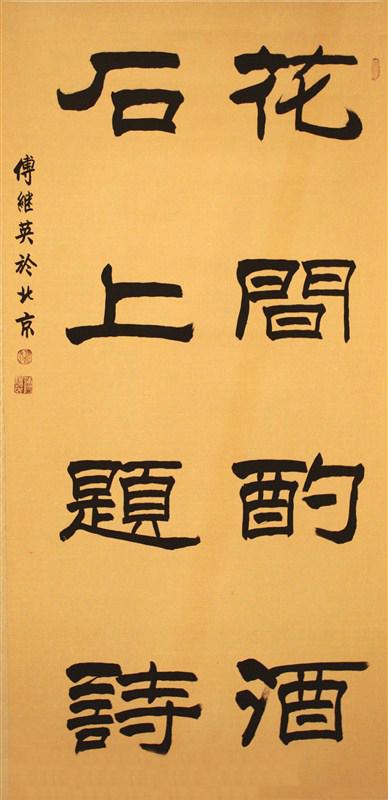 花間酌酒
石上題詩
傅继英於北京